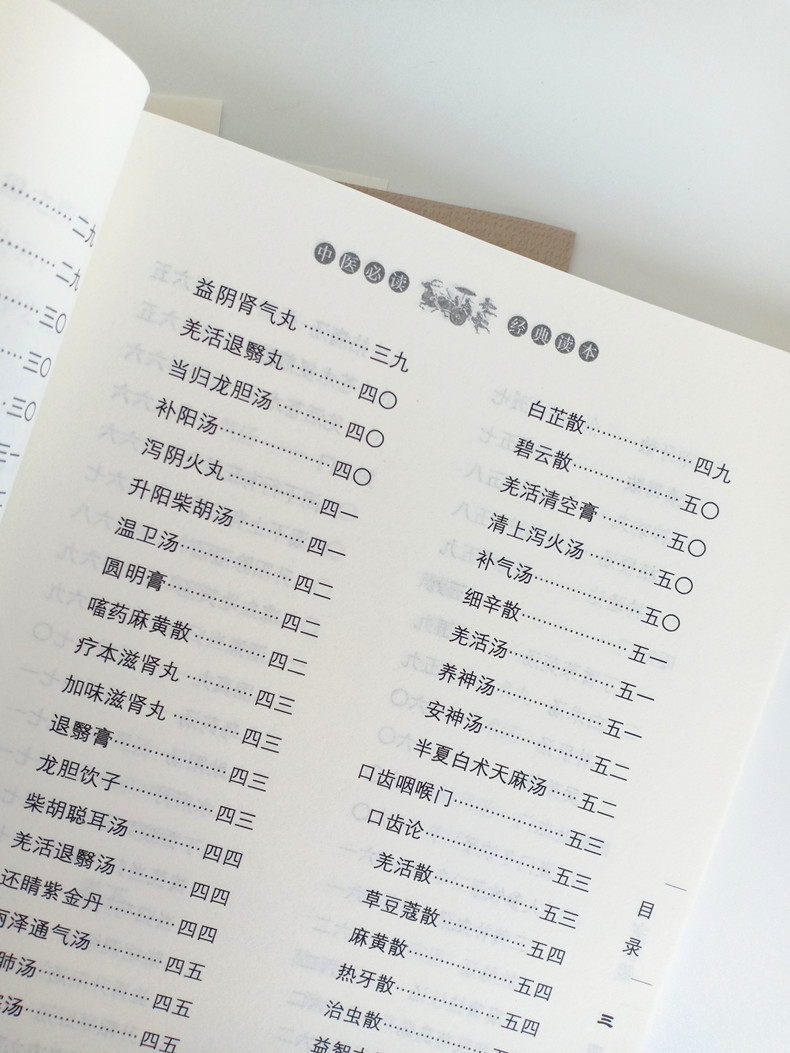 中医必读 经典读本
益阴肾气丸…………三九
羌活退翳丸…………四〇
当归龙胆汤…………四〇
补阳汤…………四〇
泻阴火丸…………四一
升阳柴胡汤…………四一
温卫汤…………四二
圆明膏…………四二
嗜药麻黄散…………四二
疗本滋肾丸…………四三
加味滋肾丸…………四三
退翳膏…………四三
龙胆饮子…………四三
柴胡聪耳汤…………四四
羌活退翳汤…………四四
还睛紫金丹…………四四
丽泽通气汤…………四五
肺汤…………四五
汤…………四五
白芷散…………四九
碧云散…………五〇
羌活清空膏…………五〇
清上泻火汤…………五〇
补气汤…………五〇
细辛散…………五一
羌活汤…………五一
养神汤…………五一
安神汤…………五二
半夏白术天麻汤……五二
口齿咽喉门…………五三
口齿论…………五三
羌活散…………五三
草豆蔻散…………五四
麻黄散…………五四
热牙散…………五四
治虫散…………五四
益智
目录
三
二九
二九
三〇
三〇
三〇